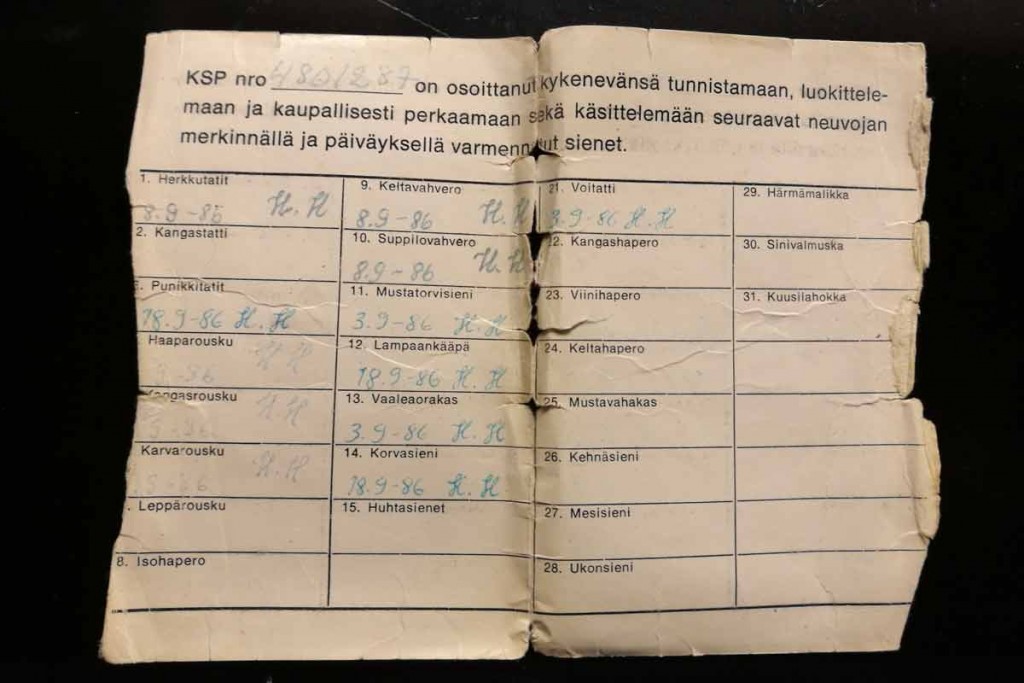 KSP nro 480/287 on osoittanut kykenevänsä tunnistamaan, luokittele-
maan ja kaupallisesti perkaamaan sekä käsittelemään seuraavat neuvojan
merkinnällä ja päiväyksellä varmennetut sienet.
1. Herkkutatit
8.9-86 H.H
2. Kangastatti
3. Punikkitatit
18.9-86 H.H
Haaparousku
H H
Kangasrousku
H.H
Karvarousku
H.H
. Leppärousku
8. Isohapero
9. Keltavahvero
8.9-86 H.H
10. Suppilovahvero
8.9-86 H.H
11. Mustatorvisieni
3.9-86 H.H
12. Lampaankääpä
18.9-86 H.H
13. Vaaleaorakas
3.9-86 H.H
14. Korvasieni
18.9-86 H.H
15. Huhtasienet
21. Voitatti
3.9-86 H.H
22. Kangashapero
23. Viinihapero
24. Keltahapero
25. Mustavahakas
26. Kehnäsieni
27. Mesisieni
28. Ukonsieni
29. Härmämalikka
30. Sinivalmuska
31. Kuusilahokka